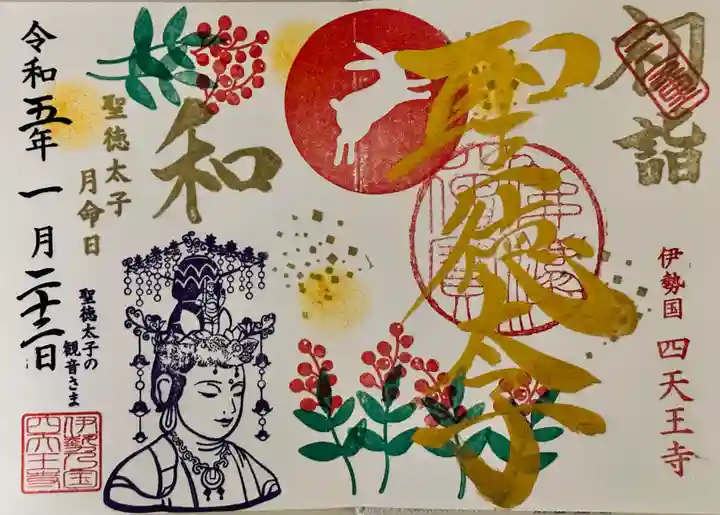 初詣
伊勢国 四天王寺
聖徳太子
和
聖徳太子
月命日
令和五年 一月二十二日
聖徳太子の
観音さま
伊勢乃国
四天王寺